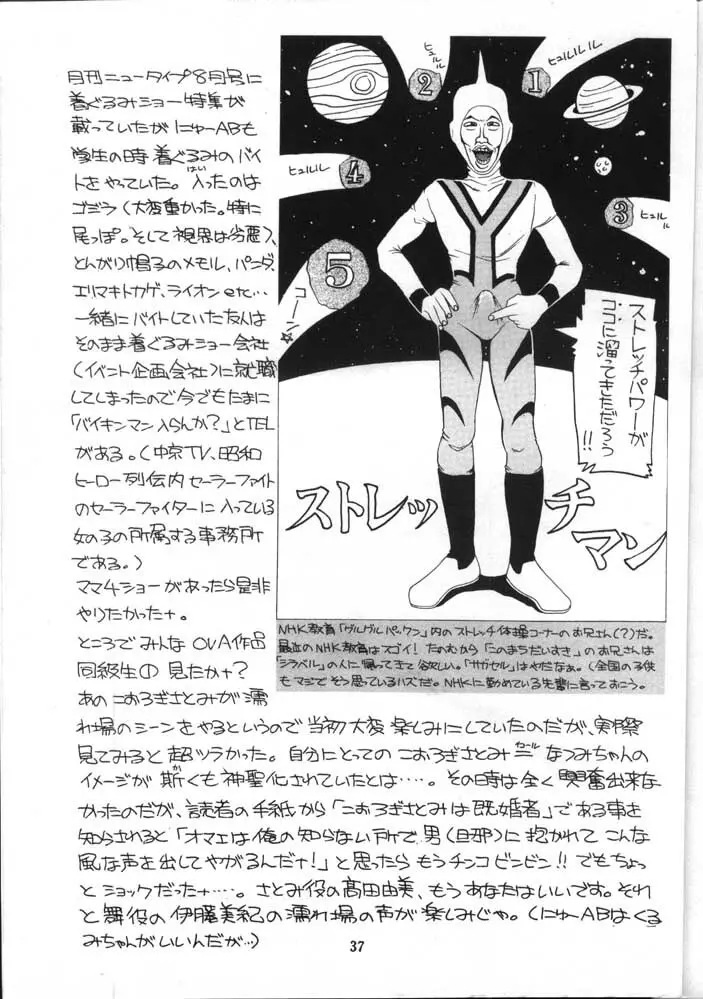 月刊ニュータイプ8月号に
着ぐるみショー特集が
載っていたがにゅーABも
学生の時着ぐるみのバイ
トをやっていた。入ったのは
はい
ゴジラ(大変重かった。特に
尾っぽ。そして視界は劣悪)、
とんがり帽子のメモル、パンダ、
エリマキトカゲ、ライオンetc…
一緒にバイトしていた友人は
そのまま着ぐるみショー会社
(イベント企画会社)に就職
してしまったので今でもたまに
「バイキンマン入らんか?」とTEL
がある。(中京TV、昭和
ヒーロー列伝内セーラーファイト
のセーラーファイターに入っている
女の子の所属する事務所
である。)
ママ4ショーがあったら是非
やりたかったナ。
ところでみんなOVA作品
同級生①見たかナ?
あのこおろぎさとみが濡
れ場のシーンをやるというので当初大変楽しみにしていたのだが、実際
見てみると超ツラかった。自分にとってのこおろぎさとみ=なつみちゃんの
イコール
イメージが斯くも神聖化されていたとは…。その時は全く興奮出来な
か
かったのだが、読者の手紙から「こおろぎさとみは既婚者」である事を
知らされると「オマエは俺の知らない所で男(旦那)に抱かれてこんな
風な声を出してやがるんだナ!」と思ったらもうチンコビンビン!!でもちょっ
とショックだったナ…。さとみ役の高田由美、もうあなたはいいです。それ
と舞役の伊藤美紀の濡れ場の声が楽しみじゃ。(にゅーABはくる
みちゃんがいいんだが…)
ヒュルル
2
ヒュルルルル
1
ヒュルルル
4
3
ヒュルル
ル
5
コーン
ストレッチパワーが
ココに溜ってきただろう
!!
ストレッチ
マン
NHK教育「グルグルパックン」内のストレッチ体操コーナーのお兄さん(?)だ。
最近のNHK教育はスゴイ!たのむから「このまちだいすき」のお兄さんは
「シラベル」の人に帰ってきて欲しい。「サガセル」はやだなぁ。(全国の子供
もマジでそう思っているハズだ。NHKに勤めている先輩に言っておこう。
37